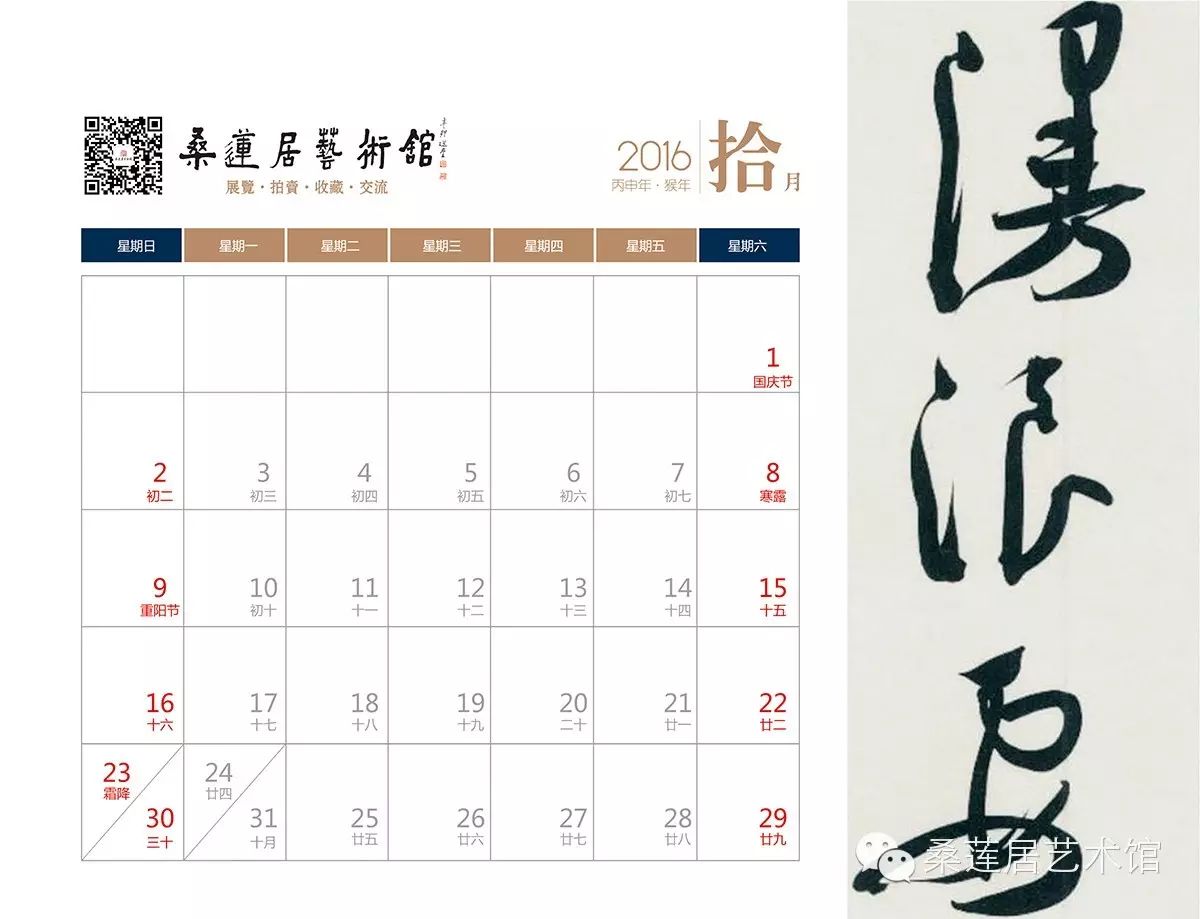 桑蓮居藝術館
展覽·拍賣·收藏·交流
2016
丙申年·猴年
拾月
星期日 星期一 星期二 星期三 星期四 星期五 星期六
1
国庆节
2 3 4 5 6 7 8
初二 初三 初四 初五 初六 初七 寒露
9 10 11 12 13 14 15
重阳节 初十 十一 十二 十三 十四 十五
16 17 18 19 20 21 22
十六 十七 十八 十九 二十 廿一 廿二
23 24
霜降 廿四
30 31 25 26 27 28 29
三十 十月 廿五 廿六 廿七 廿八 廿九
桑莲居艺术馆